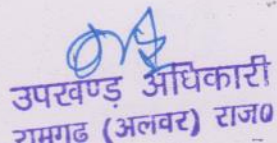 उपखण्ड़ अधिकारी
रामगढ (अलवर) राज०